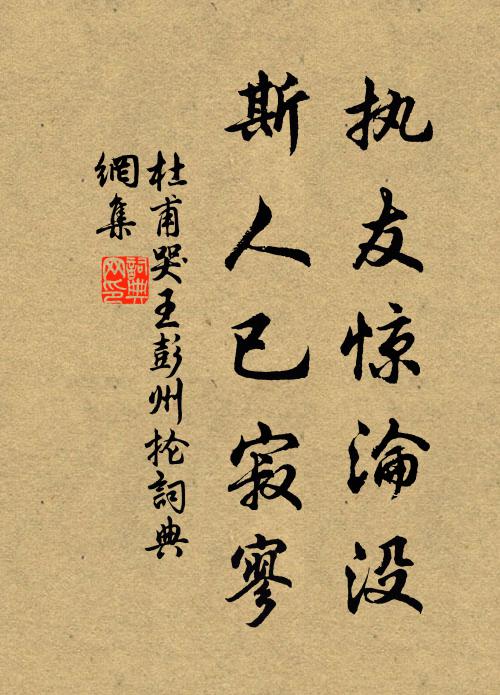 执友惊沦没
斯人已寂寥
杜甫哭王彭州抡词典
網集
詞典網印